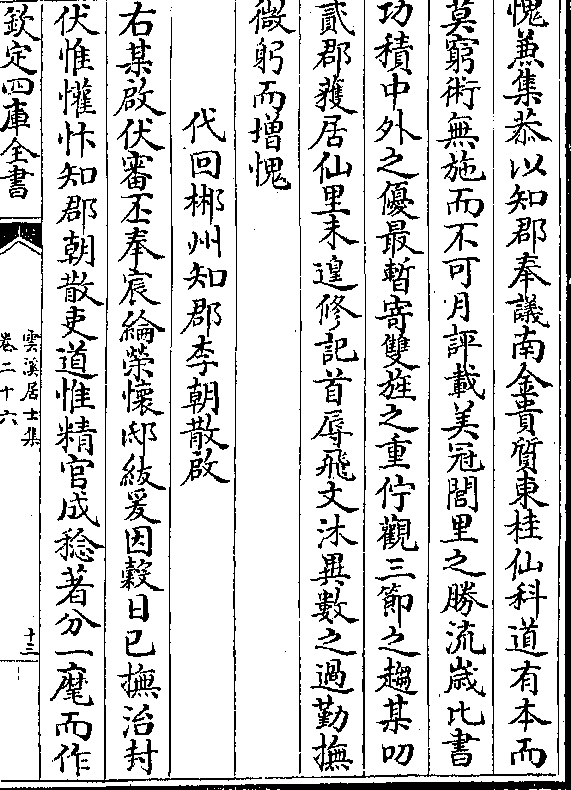 愧兼集恭以知郡奉議南金貴質東桂仙科道有本而
莫窮術無施而不可月評載美冠閭里之勝流歲比書
功積中外之優最暫寄雙旌之重佇觀三節之趨某叨
貳郡穫居仙里未遑修記首辱飛文沐異數之過勤撫
微躬而增愧
代回郴州知郡李朝散啟
右某啟伏審丕奉宸綸榮懷邸紱爰因糓日已撫治封
伏惟懽忭知郡朝散吏道惟精官成稔著分一麾而作
欽定四庫全書
雲溪居士集
卷二十六
十三